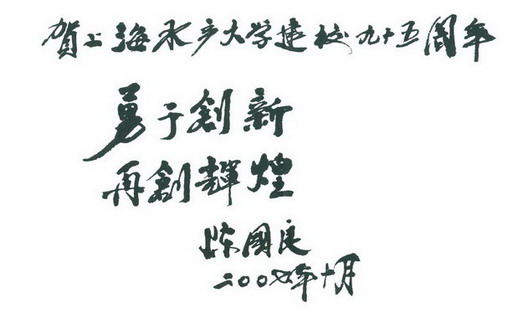 賀上海水产大学建校九十五周年
勇于創新
再創輝煌
陈國良
二〇〇七年十月